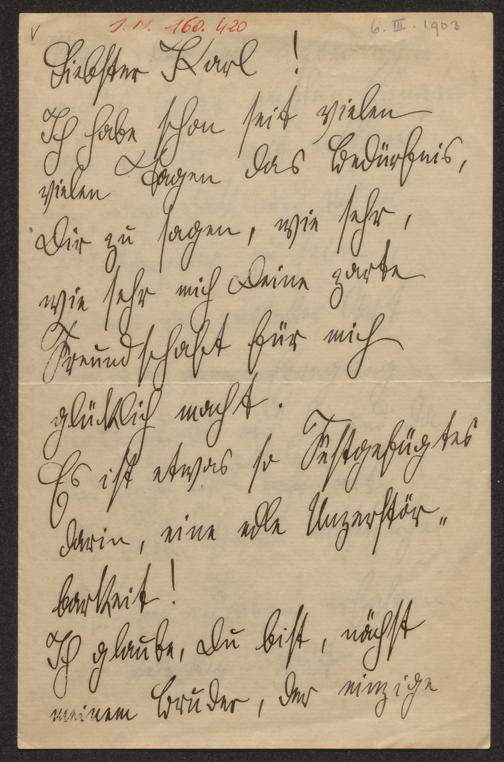 J. N. 160.420
6. III. 1903
Liebster Karl !
Ich habe schon seit vielen
vielen Tagen das Bedürfnis,
Dir zu sagen, wie sehr,
wie sehr mich Deine zarte
Freundschaft für mich
glücklich macht.
Es ist etwas so Festgefügtes
darin, eine edle Unzerstör„
barkeit !
Ich glaube, Du bist, nächst
meinem Bruder, der einzige